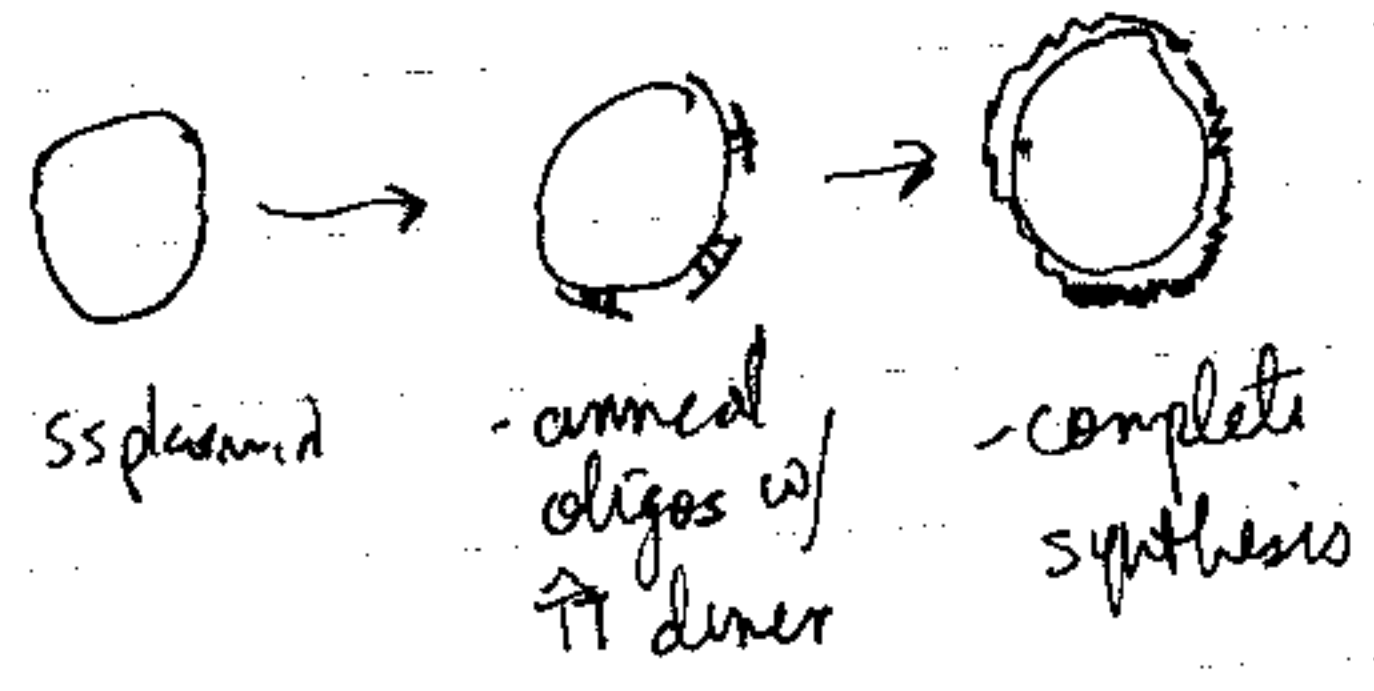 ss plasmid
- anneal
oligos w/
T͡T dimer
- complete
synthesis